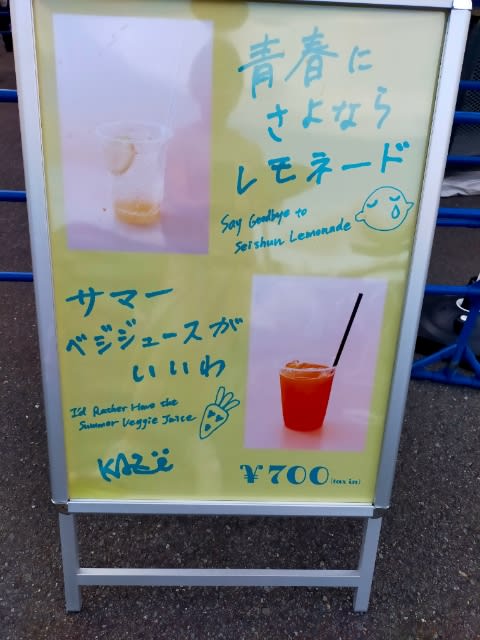 青春に
さよなら
レモネード
Say Goodbye to
Seishun Lemonade
サマー
ベジジュースが
いいわ
I'd Rather Have the
Summer Veggie Juice
KAZë
¥700(tax in)